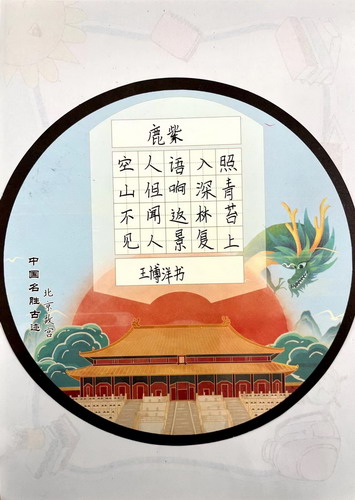 鹿柴
空山不见
人但闻人
语响返景
入深林复
照青苔上
王博洋书
中国名胜古迹
北京故宫